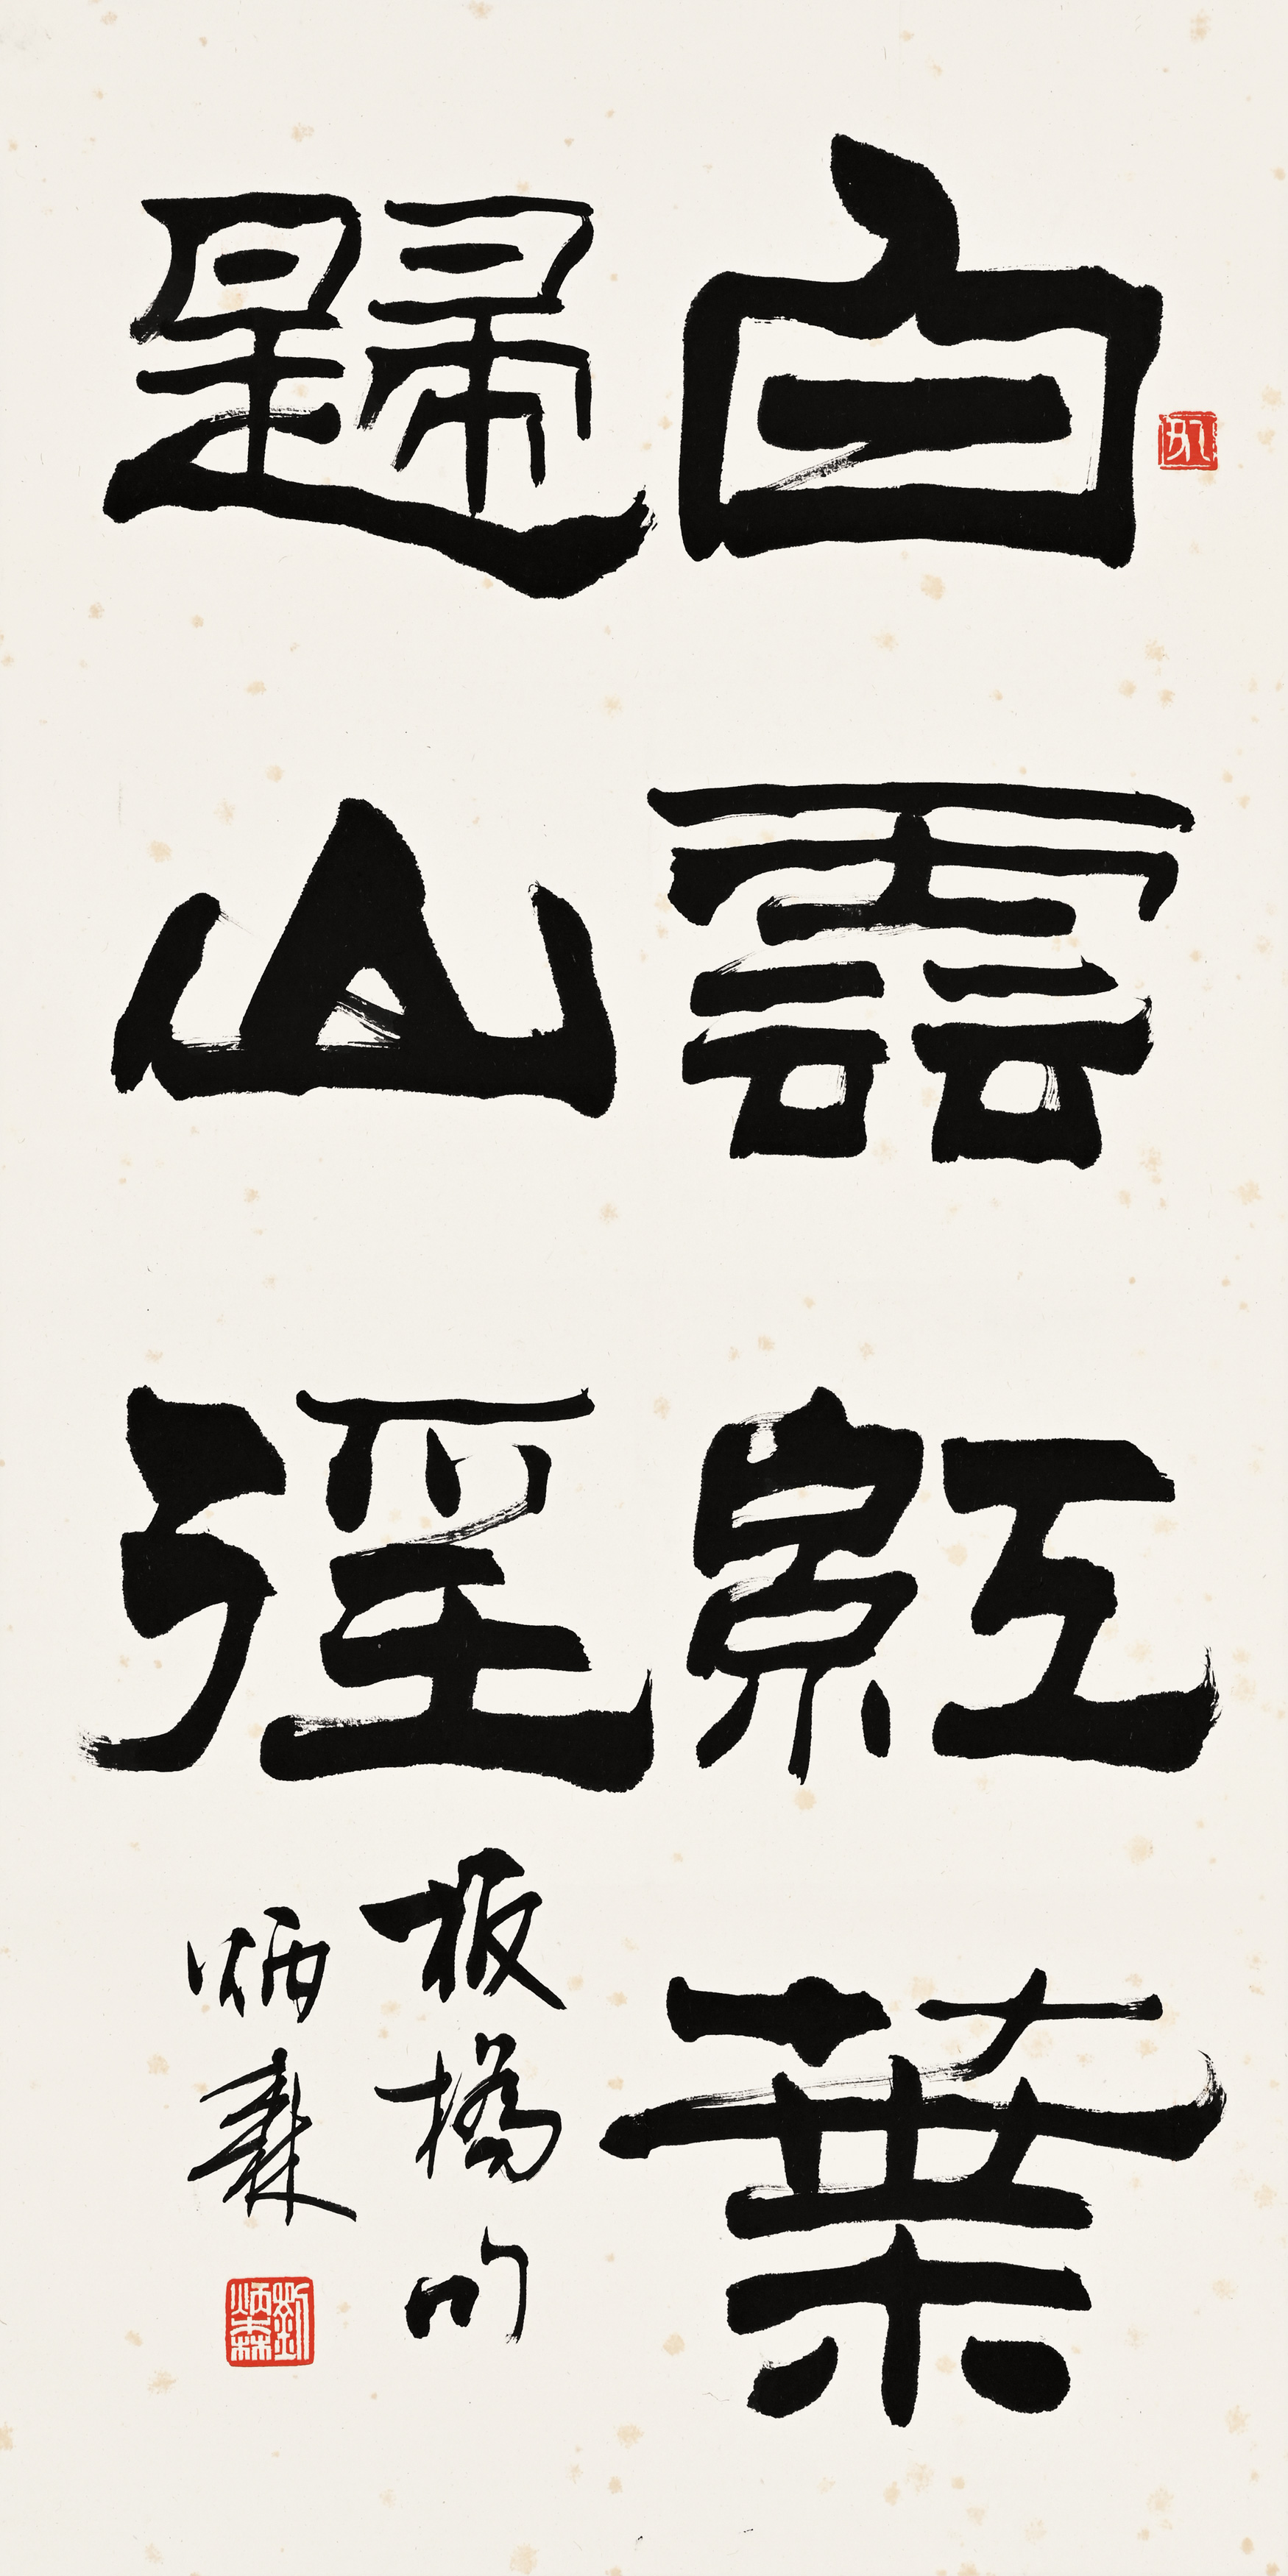 白雲紅葉
歸山徑
板橋句
炳森
劉炳森